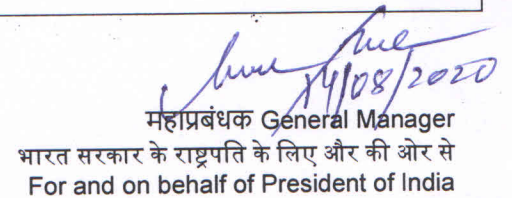 14/08/2020
महाप्रबंधक General Manager
भारत सरकार के राष्ट्रपति के लिए और की ओर से
For and on behalf of President of India